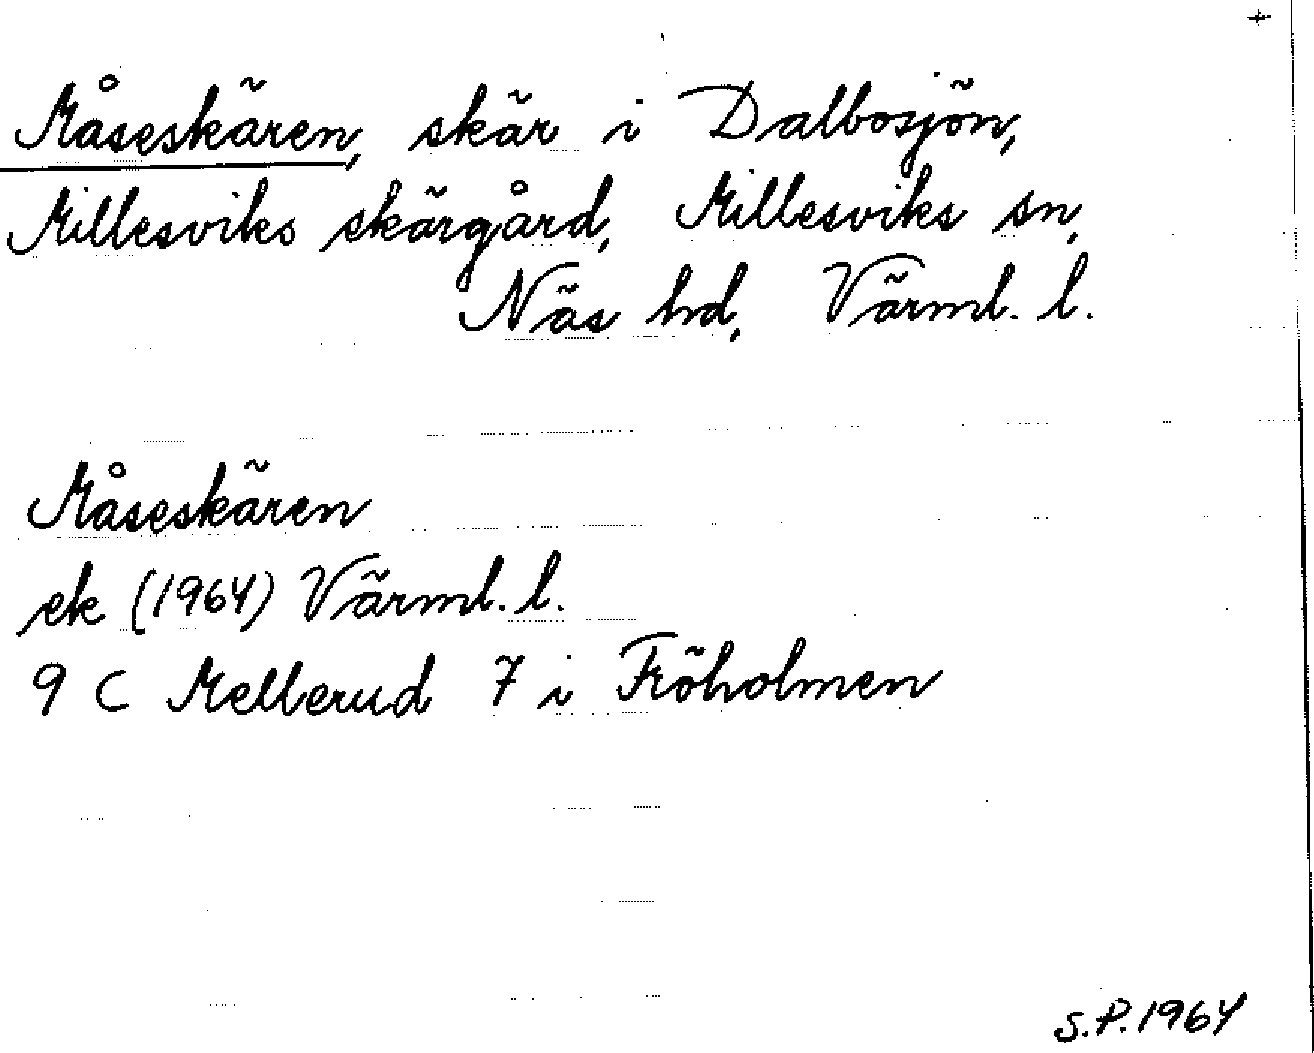 +
Måseskären, skär i Dalbosjön,
Millesviks skärgård, Millesviks sn,
Näs hd, Värml. l.
Måseskären
ek (1964) Värml. l.
9 C Mellerud 7 i Fröholmen
S.P. 1964